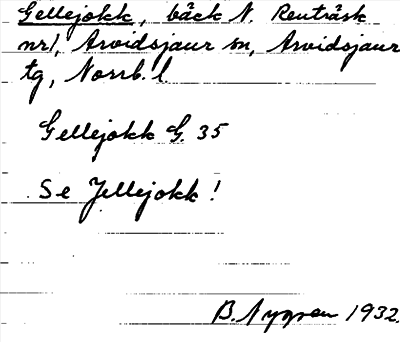 Gellejokk, bäck N. Renträsk
nr 1, Arvidsjaur sn, Arvidsjaur
tg, Norrb. l
Gellejokk G. 35
Se Jellejokk!
B. Nygren 1932.